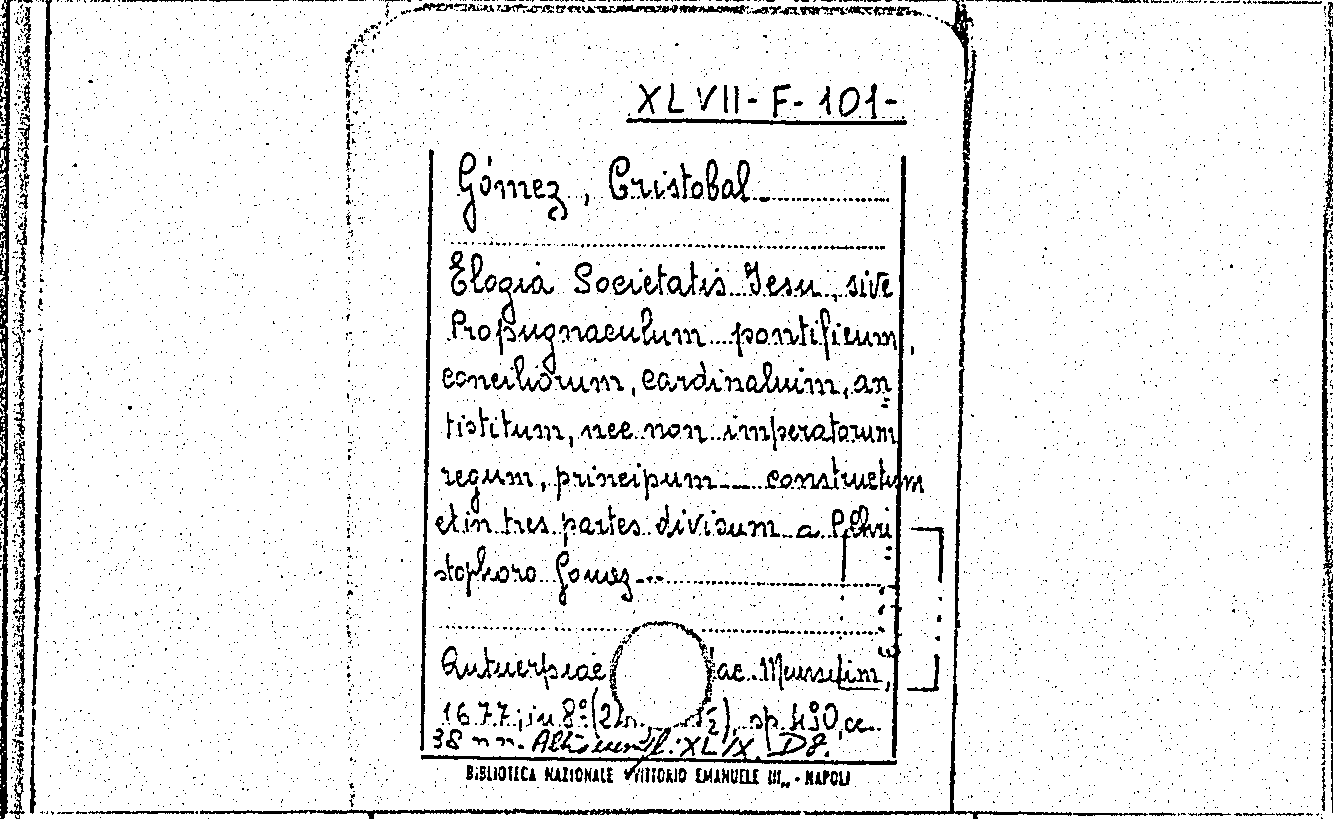 XLVII-F-101-
Gómez, Cristobal
Elogia Societatis Iesu, sive
Propugnaculum pontificum,
conciliorum, cardinalium, an
tistitum, nec non imperatorum
regum, principum ... constructum
et in tres partes divisum a P. Chri
stophoro Gomez...
Antuerpiae ac. Meursium,
1677, in 8° (2 pp. 490, c.
38 nn. Altro XLIX. D 8.
BIBLIOTECA NAZIONALE "VITTORIO EMANUELE III" - NAPOLI